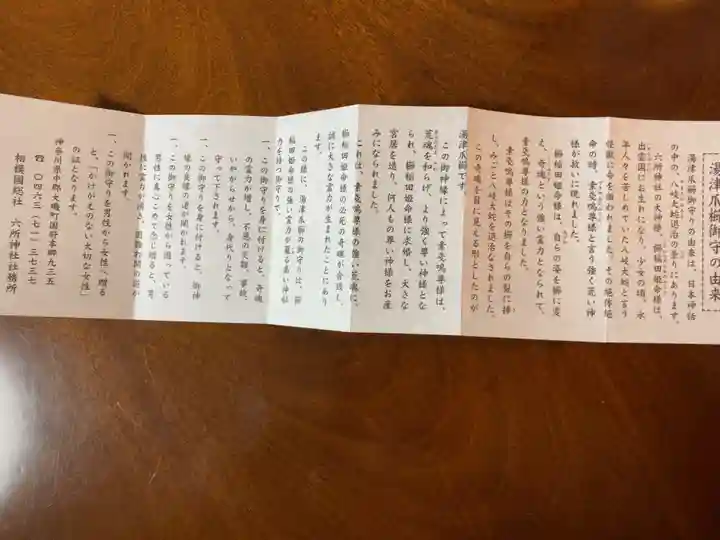 湯津爪櫛御守の由来
湯津爪櫛御守りの由来は、日本神話
の中の、八岐大蛇退治の条にあります。
六所神社の大神様、櫛稲田姫命様は、
出雲国にお生れになり、少女の頃、永
年人々を苦しめていた八岐大蛇と言う
怪獣に命を狙われました。その絶体絶
命の時、素戔嗚尊様と言う強く荒い神
様が救いに現れました。
櫛稲田姫命様は、自らの姿を櫛に変
え、奇魂という強い霊力となられて、
素戔嗚尊様の力となりました。
素戔嗚尊様はその櫛を自らの髪に挿
し、みごと八岐大蛇を退治なされました。
この奇魂を目に見える形としたのが
湯津爪櫛です。
この御神縁によって素戔嗚尊様は、
荒魂を和らげ、より強く尊い神様とな
られ、櫛稲田姫命様に求婚し、大きな
宮居を造り、何人もの尊い神様をお産
みになられました。
これは、素戔嗚尊様の強い荒魂に、
櫛稲田姫命様の必死の奇魂が合護し、
誠に大きな霊力が生まれたことにあり
ます。
この様に、湯津爪櫛の御守りは、櫛
稲田姫命様の強い霊力が籠る尊い神秘
力を持つ御守りで、
一、この御守りを身に付けると、奇魂
の霊力が増し、不慮の災難、事故、
いやがらせから、身代りとなって
守って下されます。
一、この御守りを身に付けると、御神
縁の良縁の道が開かれます。
一、この御守りを女性から困っている
男性に真心こめて念じ贈ると、男
性に霊力が湧き、困難打開の道が
開かれます。
一、この御守りを男性から女性へ贈る
と、「かけがえのない大切な女性」
の証となります。
神奈川県中郡大磯町国府本郷九三五
相模國総社 六所神社社務所
☎〇四六三(七一)三七三七